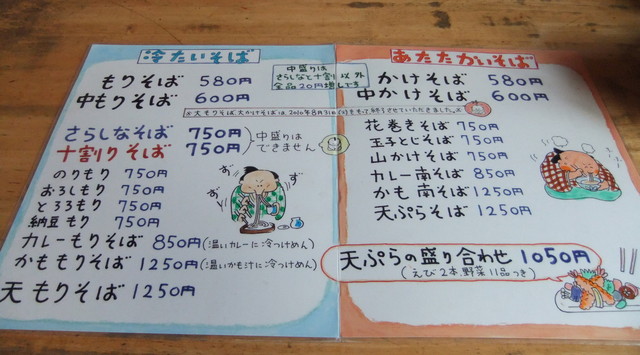 冷たいそば
もりそば 580円
中もりそば 600円
中盛りは
さらしなと十割り以外
全品20円増しです
さらしなそば 750円
十割りそば 750円
中盛りは
できません
のりもり 750円
おろしもり 750円
とろろもり 750円
納豆もり 750円
カレーもりそば 850円(温いカレーに冷つけめん)
かももりそば 1250円(温いかも汁に冷つけめん)
天もりそば 1250円
ずずずず
あたたかいそば
かけそば 580円
中かけそば 600円
花巻きそば 750円
玉子とじそば 750円
山かけそば 750円
カレー南そば 850円
かも南そば 1250円
天ぷらそば 1250円
天ぷらの盛り合わせ 1050円
(えび2本、野菜11品つき)